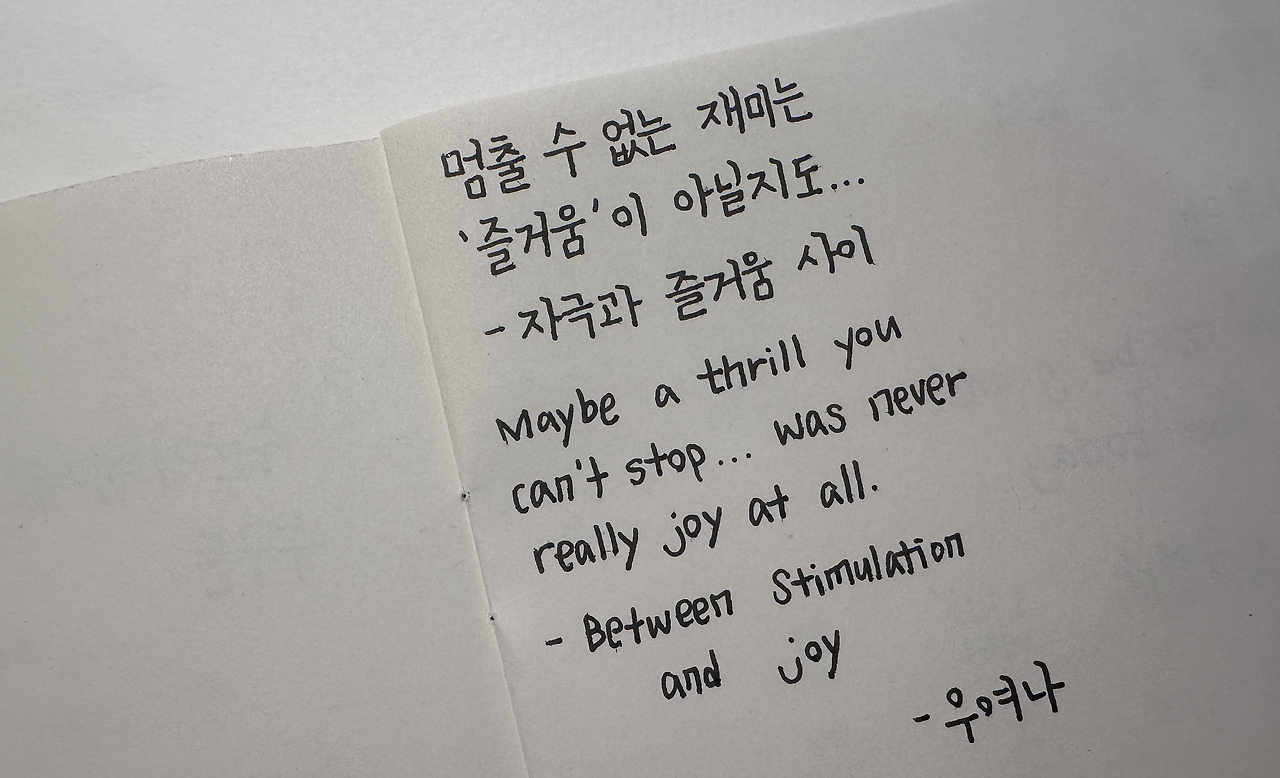 멈출 수 없는 재미는
'즐거움'이 아닐지도...
- 자극과 즐거움 사이
Maybe a thrill you
can't stop... was never
really joy at all.
- Between Stimulation
and joy
- 우여나